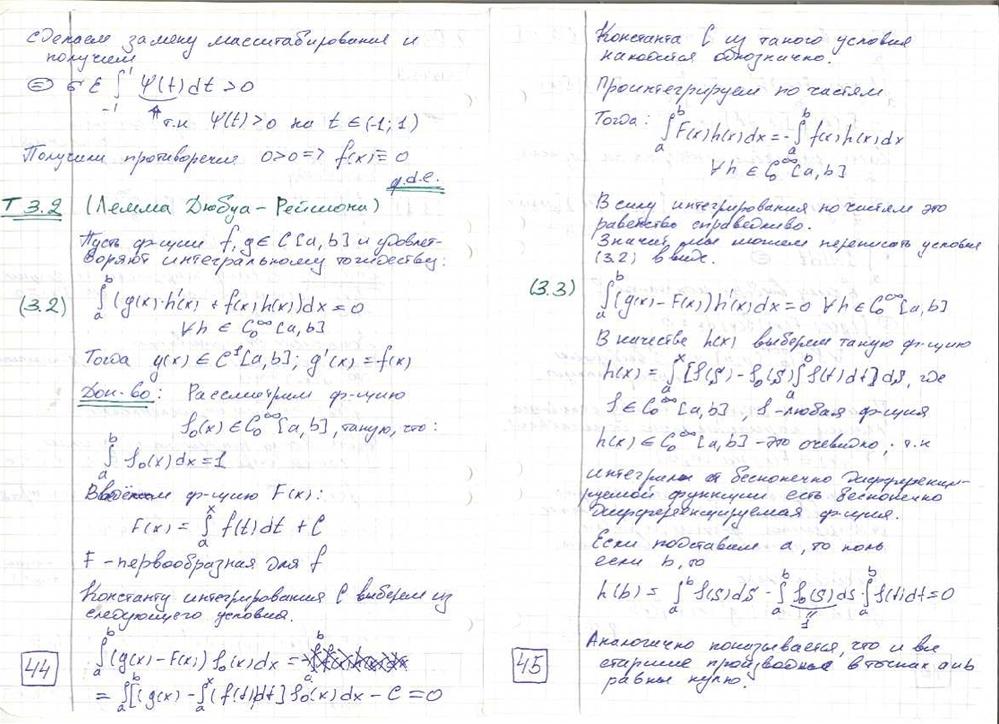 сделаем замену масштабирования и
получим
⊜ σ ε ∫₋₁¹ Ψ(t)dt > 0
т.к Ψ(t)>0 на t ∈ (-1; 1)
Получили противоречие 0>0 => f(x) ≡ 0
q.d.e.
Т 3.2 (Лемма Дюбуа-Реймона)
Пусть ф-ции f, g ∈ C [a, b] и удовлет-
воряют интегральному тождеству:
(3.2) ∫ₐᵇ (g(x)·h'(x) + f(x)h(x))dx = 0
∀h ∈ C₀^∞ [a, b]
Тогда g(x) ∈ C¹[a, b]; g'(x) = f(x)
Док-во: Рассмотрим ф-цию
ρ₀(x) ∈ C₀^∞ [a, b], такую, что:
∫ₐᵇ ρ₀(x)dx = 1
Введём ф-цию F(x):
F(x) = ∫ₐˣ f(t)dt + C
F - первообразная для f
Константу интегрирования C выберем из
следующего условия.
∫ₐᵇ (g(x) - F(x)) ρ₀(x)dx =
= ∫ₐᵇ [(g(x) - ∫ₐˣ (f(t)dt] ρ₀(x)dx - C = 0
44
Константа C из такого условия
находится однозначно.
Проинтегрируем по частям
Тогда: ∫ₐᵇ F(x)h'(x)dx = -∫ₐᵇ f(x)h(x)dx
∀h ∈ C₀^∞ [a, b]
В силу интегрирования по частям это
равенство справедливо.
Значит, мы можем переписать условие
(3.2) в виде.
(3.3) ∫ₐᵇ (g(x) - F(x))h'(x)dx = 0 ∀h ∈ C₀^∞ [a, b]
В качестве h(x) выберем такую ф-цию
h(x) = ∫ₐˣ [ρ(s) - ρ₀(s) ∫ₐᵇ ρ(t)dt]ds, где
ρ ∈ C₀^∞ [a, b], ρ - любая ф-ция
h(x) ∈ C₀^∞ [a, b] - это очевидно, т.к
интеграл от бесконечно дифференци-
руемой функции есть бесконечно
дифференцируемая ф-ция.
Если подставим a, то ноль
если b, то
h(b) = ∫ₐᵇ ρ(s)ds - ∫ₐᵇ ρ₀(s)ds · ∫ₐᵇ ρ(t)dt = 0
1
Аналогично показывается, что и все
старшие производные в точках a и b
равны нулю.
45